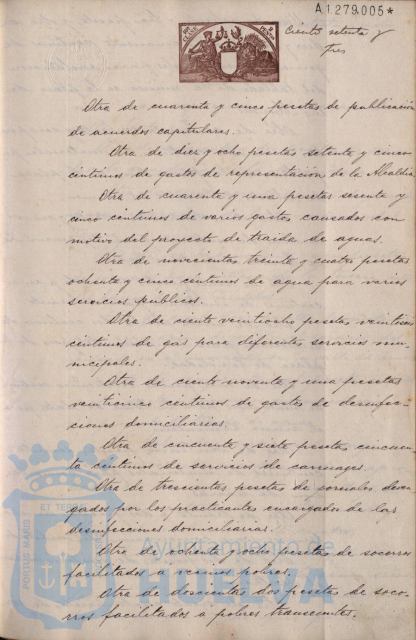 A1279005*
Ciento setenta y
tres
Otra de cuarenta y cinco pesetas de publicación
de acuerdos capitulares.
Otra de diez y ocho pesetas setenta y cinco
céntimos de gastos de representación de la Alcaldía
Otra de cuarenta y una pesetas sesenta y
cinco céntimos de varios gastos causados con
motivo del proyecto de traida de aguas.
Otra de novecientas treinta y cuatro pesetas
ochenta y cinco céntimos de agua para varios
servicios públicos.
Otra de ciento veintiocho pesetas
céntimos de gás para diferentes servicios mu-
nicipales.
Otra de ciento noventa y una pesetas
veinticinco céntimos de gastos de desinfec-
ciones domiciliarias.
Otra de cincuenta y siete pesetas cincuen-
ta céntimos de servicios de carruages.
Otra de trescientas pesetas de jornales deven-
gados por los practicantes encargados de las
desinfecciones domiciliarias.
Otra de ochenta y ocho pesetas de socorros
facilitados a pobres.
Otra de doscientas dos pesetas de soco-
rros facilitados a pobres transeuntes.
PORTUS MARIS ET TERRAE
Ayuntamiento de
HUELVA